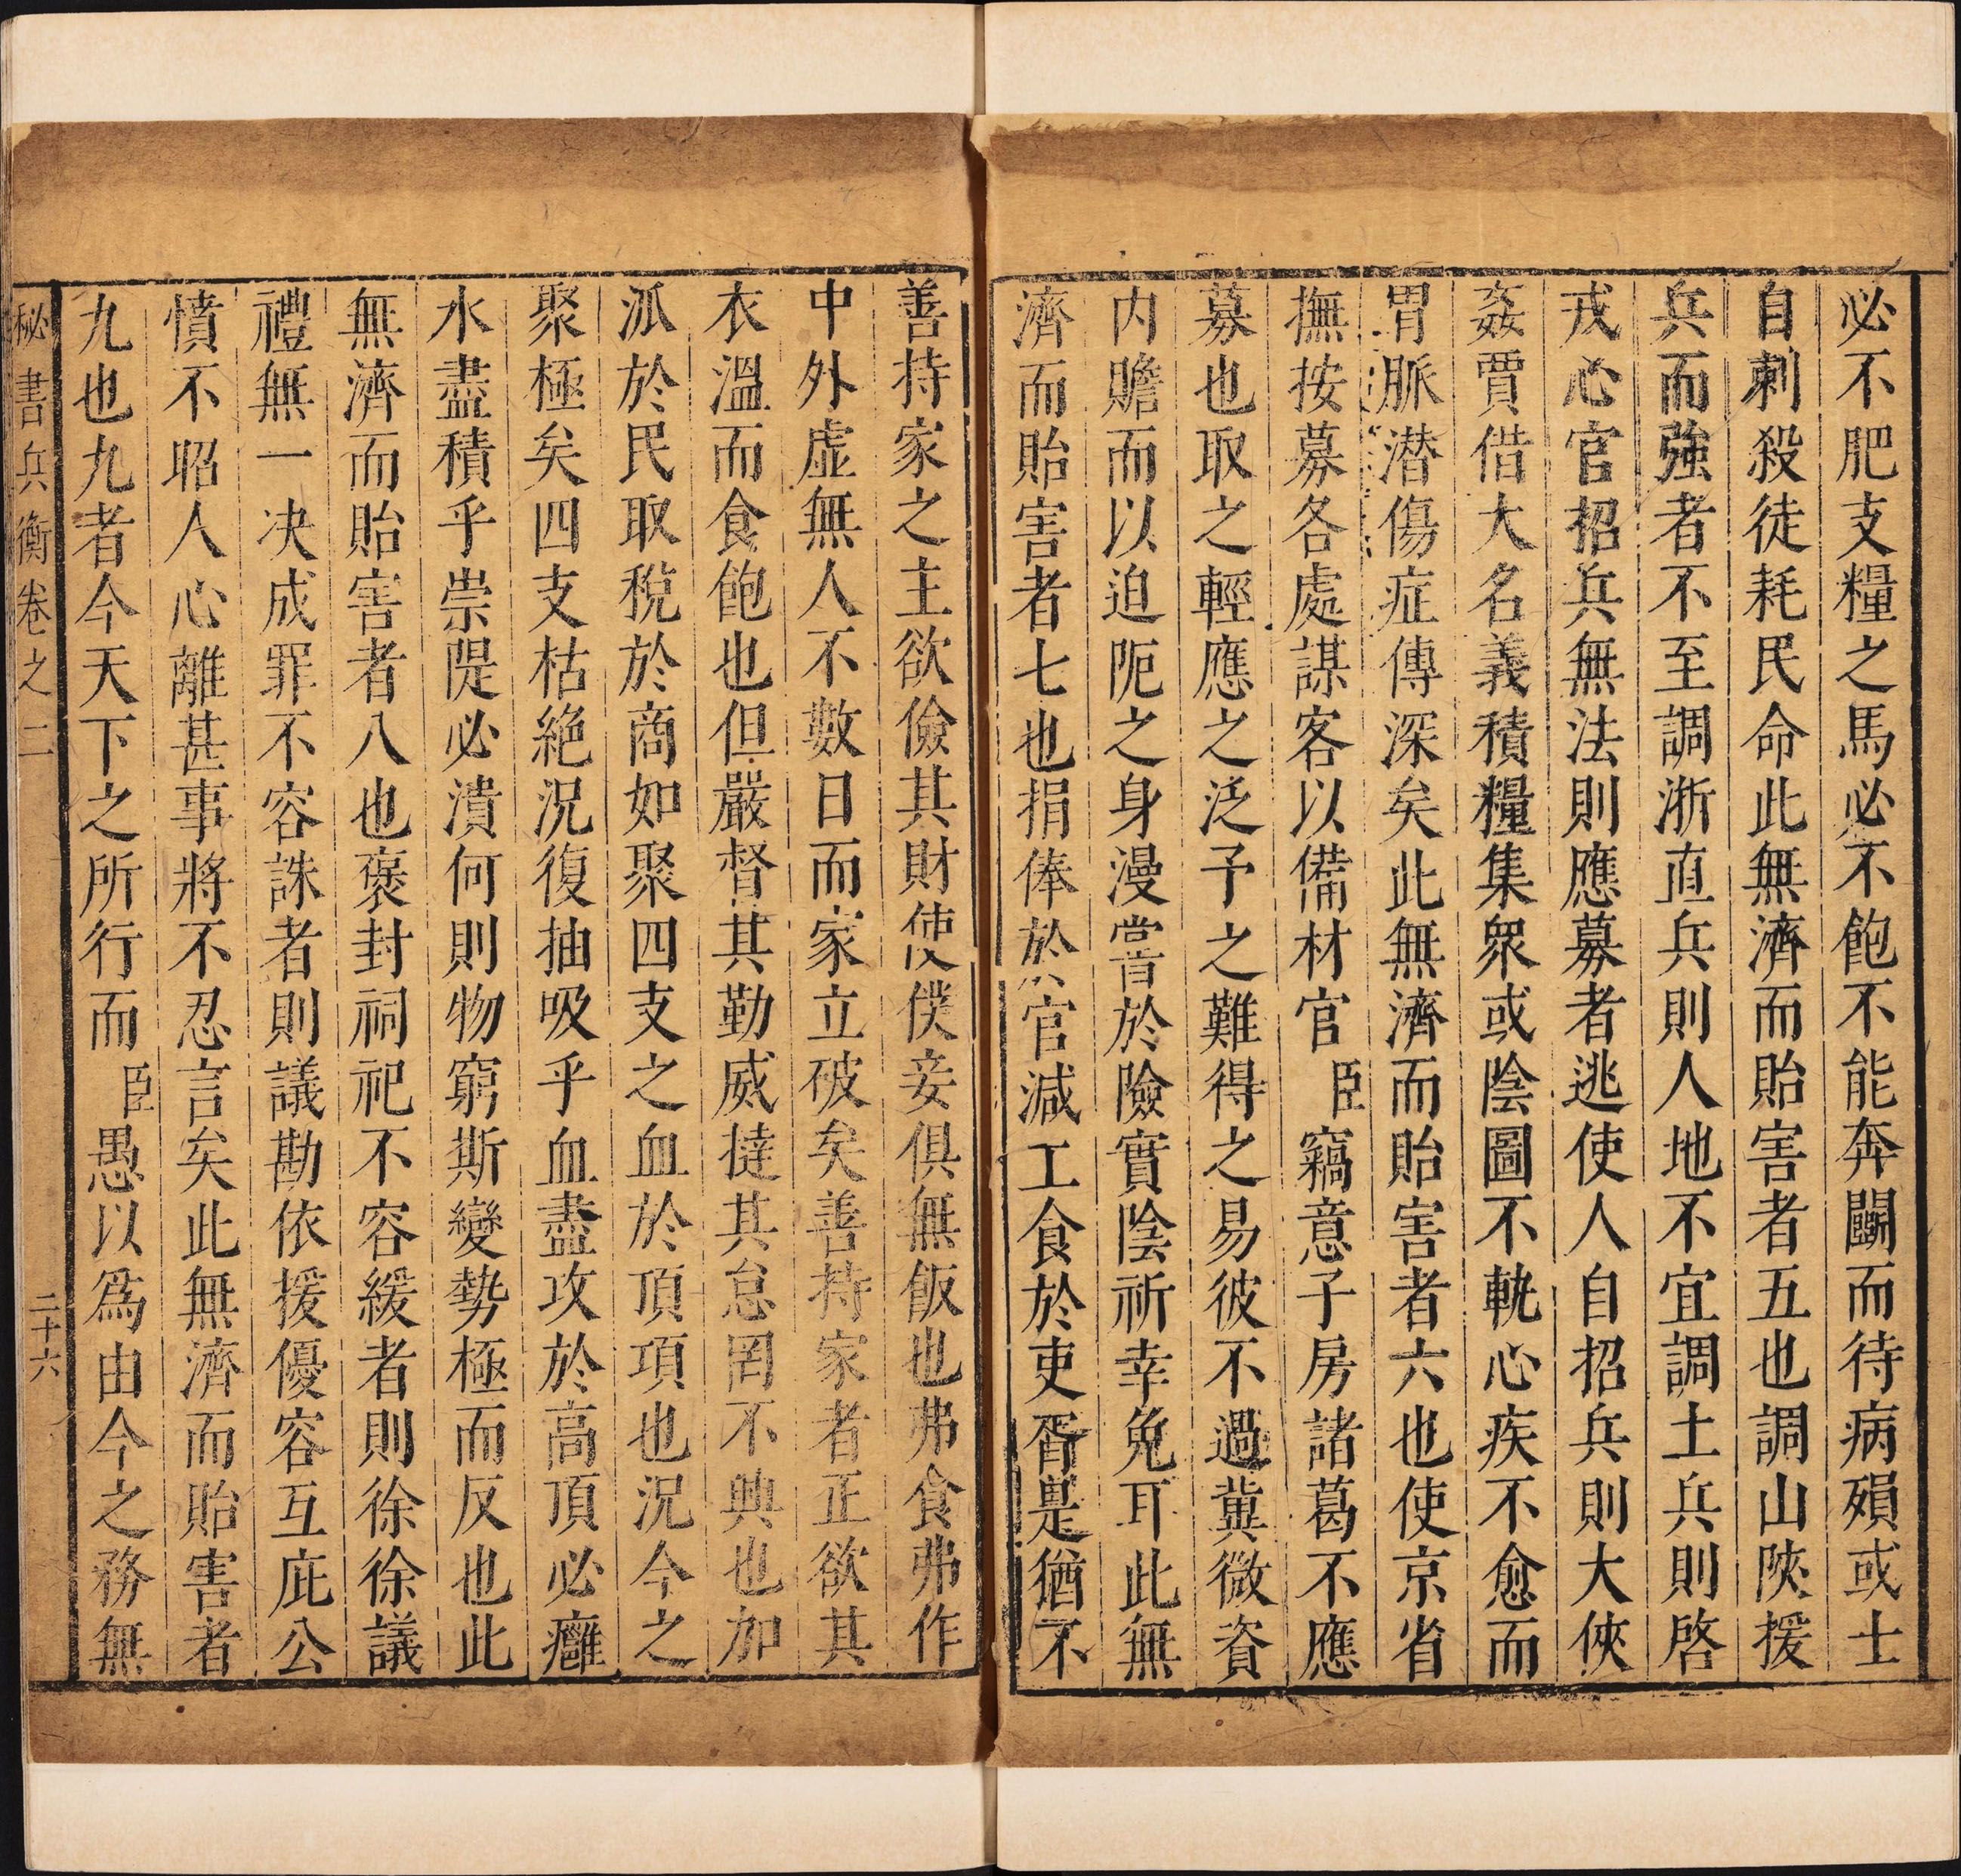 必不肥支糧之馬必不飽不能奔鬭而待病殞或士
自刺殺徒耗民命此無濟而貽害者五也調山陝援
兵而強者不至調浙直兵則人地不宜調土兵則啓
戎心官招兵無法則應募者逃使人自招兵則大俠
姦賈借大名義積糧集眾或陰圖不軌心疾不愈而
胃脈潜傷症傳深矣此無濟而貽害者六也使京省
撫按募各處謀客以備材官臣竊意子房諸葛不應
募也取之輕應之泛予之難得之易彼不過冀微資
内贍而以迫阨之身漫嘗於險實陰祈幸免耳此無
濟而貽害者七也捐俸於官減工食於吏胥是猶不
善持家之主欲儉其財使僕妾俱無飯也弗食弗作
中外虛無人不數日而家立破矣善持家者正欲其
衣溫而食飽也但嚴督其勤威撻其怠罔不興也加
派於民取稅於商如聚四支之血於頂項也況今之
聚極矣四支枯絶況復抽吸乎血盡攻於高頂必癰
水盡積乎崇隄必潰何則物窮斯變勢極而反也此
無濟而貽害者八也褒封祠祀不容緩者則徐徐議
禮無一决成罪不容誅者則議勘依援優容互庇公
憤不昭人心離甚事將不忍言矣此無濟而貽害者
九也九者今天下之所行而臣愚以爲由今之務無
秘書兵衡卷之二 二十六